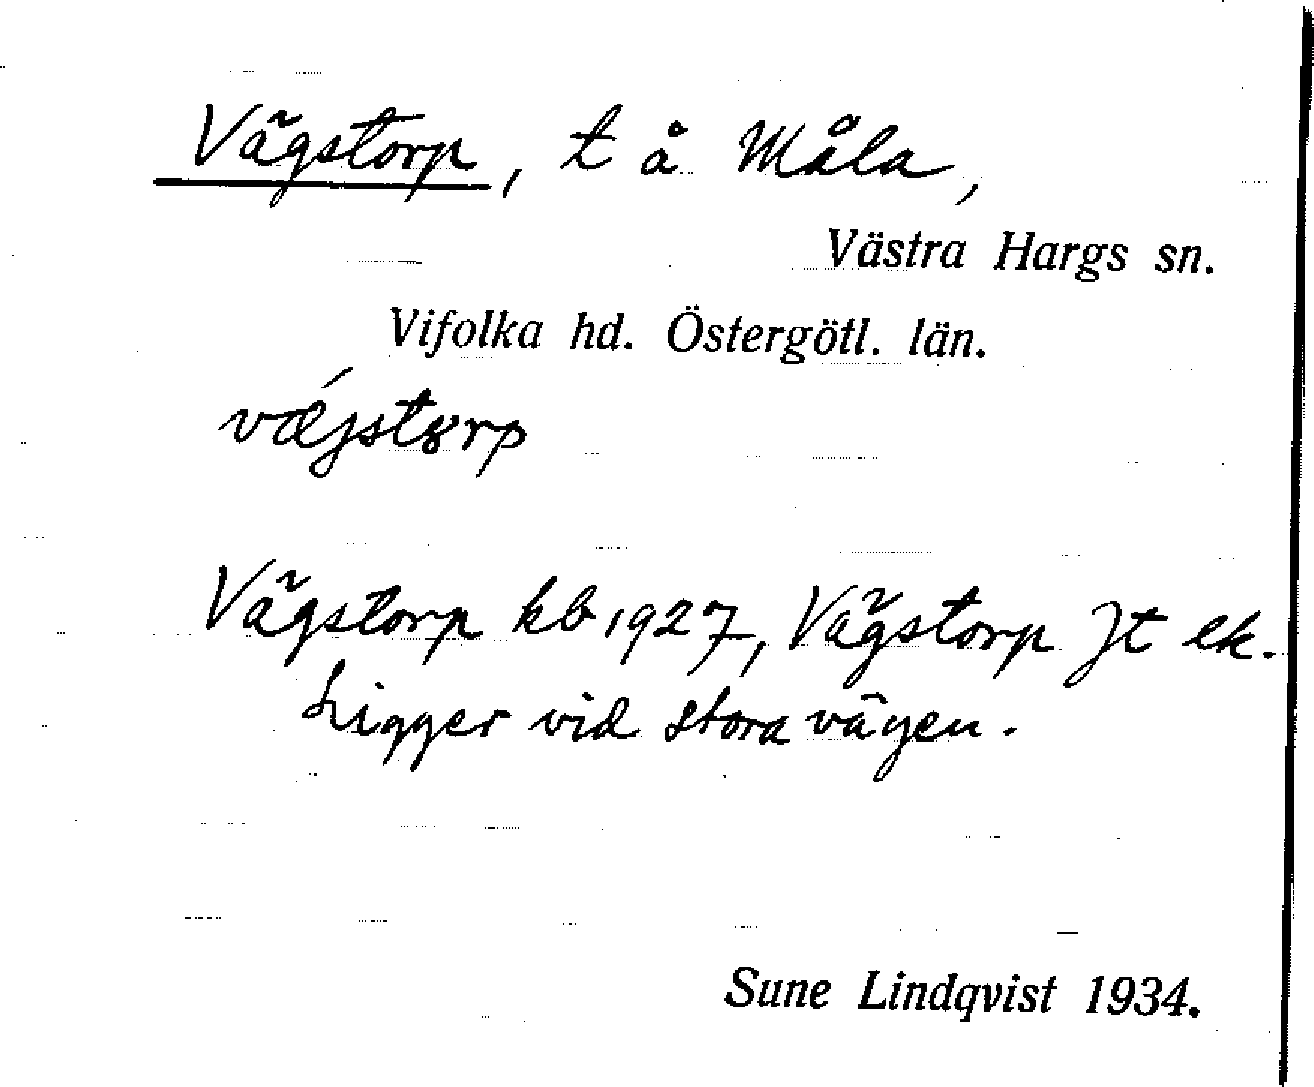 Vägstorp, t å Måla,
Västra Hargs sn.
Vifolka hd. Östergötl. län.
væ´jstɤrp
Vägstorp kb 1927, Vägstorp Jt ek.
Ligger vid stora vägen.
Sune Lindqvist 1934.